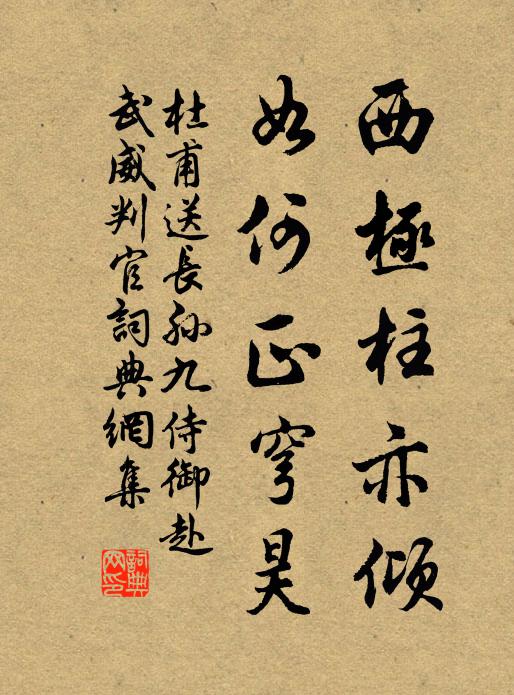 西極柱亦傾
如何正穹昊
杜甫送長孫九侍御赴
武威判官詞典網集
詞典
网印